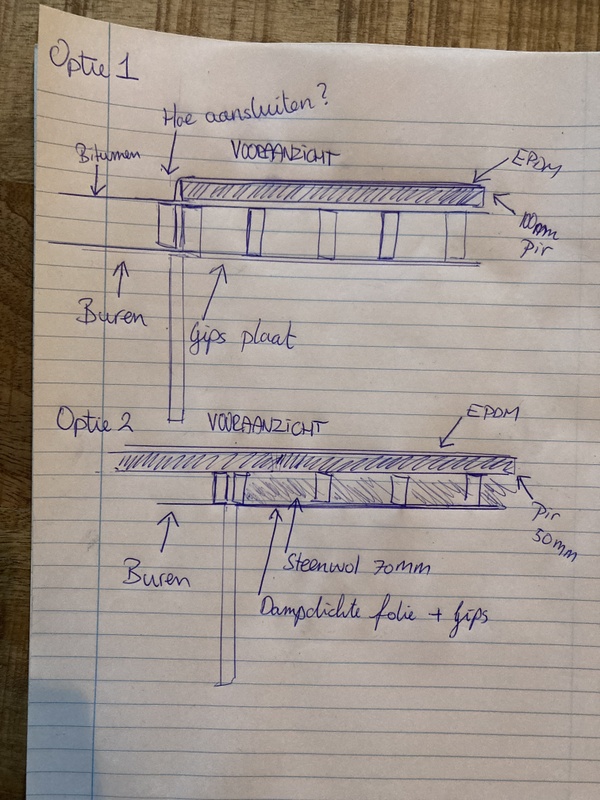 Optie 1
Hoe aansluiten?
Bitumen
VOORAANZICHT
EPDM
100mm
Pir
Buren
Gips plaat
Optie 2
VOORAANZICHT
EPDM
Pir
50mm
Buren
Steenwol 70mm
Dampdichte folie + Gips